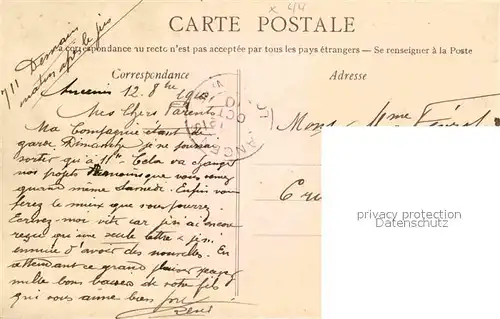 x 44
CARTE POSTALE
La correspondance au recto n'est pas acceptée par tous les pays étrangers. — Se renseigner à la Poste
Correspondance
Adresse
711 Demain
matin après le
Ancenis 12 8bre 1910
Mes Chers Parents
Ma Compagnie étant de
garde Dimanche je ne pourrai
sortir qu'à 11h. Cela va changer
nos projets que vous venez
quand même Samedi. Enfin vous
ferez le mieux que vous pourrez.
Ecrivez moi vite car je n'ai encore
reçu qu'une seule lettre & je m'
ennuie d'avoir des nouvelles. En
attendant ce grand plaisir
mille bons baisers de votre fils
qui vous aime bien fort
René
Mons & Mme
privacy protection
privacy protection